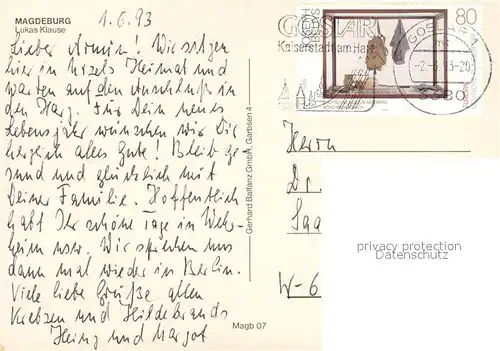 MAGDEBURG
Lukas Klause
1.6.93
Lieber Armin! Wir sitzen
hier in Heimat und
warten auf den Anschluß in
den Harz. Für Dein neues
Lebensjahr wünschen wir Dir
herzlich alles Gute! Bleib ge
sund und glücklich mit
Deiner Familie. Hoffentlich
habt Ihr schöne Tage in
heim usw. Wir sprechen uns
dann mal wieder in Berlin.
Viele liebe Grüße allen
Krebsen und Hildebrands
Heinz und Margot
Gerhard Balfanz GmbH, Garbsen 4
Magb 07
GOSLAR
Kaiserstadt am Harz
80
GOSLAR 1
3380
Herrn
Dr.
Saa
W-6
privacy protection
Datenschutz